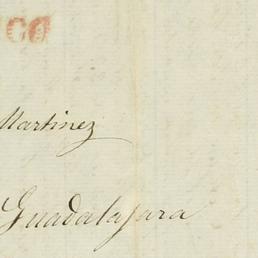 CO
Martinez
Guadalajara